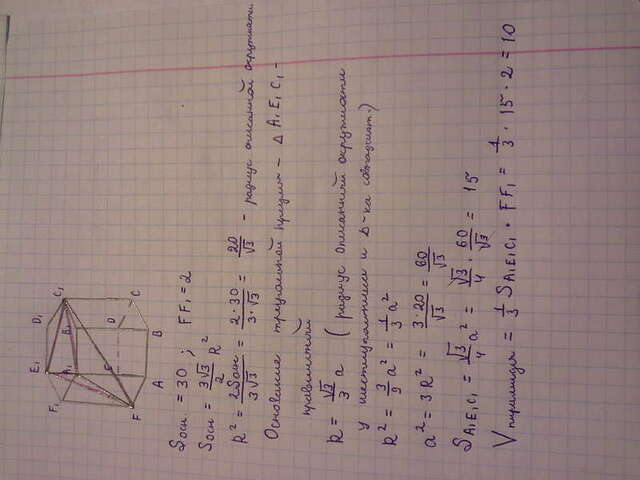 E₁ D₁ C₁
F₁ A₁ B₁
E D C
F A B
Sосн = 30 ; FF₁ = 2
Sосн = 3√3/2 R²
R² = 2Sосн/3√3 = 2·30/3·√3 = 20/√3 - радиус описанной окружности.
Основание треугольной призмы - Δ A₁E₁C₁ -
правильный
R = √3/3 a ( радиус описанной окружности
у шестиугольника и Δ-ка совпадают.)
R² = 3/9 a² = 1/3 a²
a² = 3R² = 3·20/√3 = 60/√3
S A₁E₁C₁ = √3/4 a² = √3/4 · 60/√3 = 15
V пирамиды = 1/3 S A₁E₁C₁ · FF₁ = 1/3 · 15 · 2 = 10